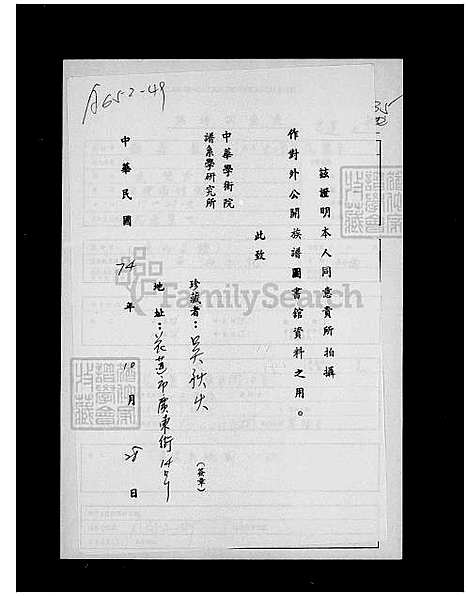 A652-49
35
茲證明本人同意貴所拍攝
作對外公開族譜圖書館資料之用。
此致
中華學術院
譜系學研究所
珍藏者：吳秋
（簽章）
地址：花蓮市廣東街14
中華民國74年10月28日
FamilySearch